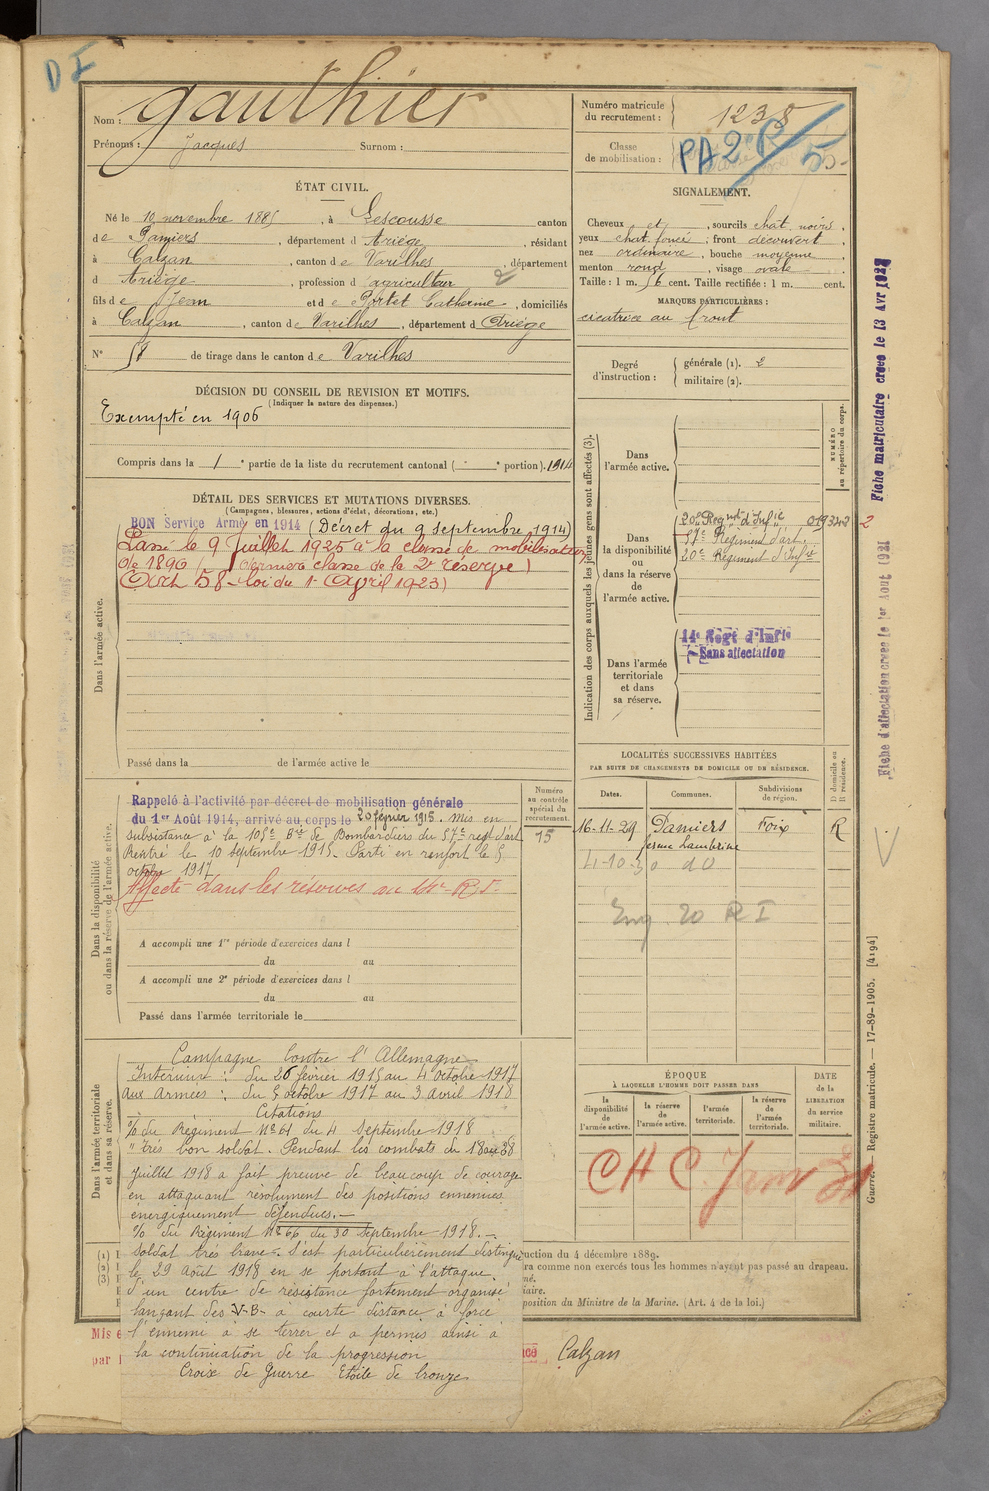 D I
Nom : Gauthier
Prénoms : Jacques Surnom :
Numéro matricule du recrutement : 1238
Classe de mobilisation :
PA 2e R
ÉTAT CIVIL.
Né le 10 novembre 1885, à Lescousse canton
de Pamiers, département d Ariège, résidant
à Calzan, canton de Varilhes, département
d Ariège, profession d agriculteur 2
fils de Jean et de Portet Catherine, domiciliés
à Calzan, canton de Varilhes, département d Ariège
N° 58 de tirage dans le canton de Varilhes
SIGNALEMENT.
Cheveux et, sourcils chat. noirs,
yeux chat. foncé, front découvert,
nez ordinaire, bouche moyenne
menton rond, visage ovale.
Taille : 1 m. 56 cent. Taille rectifiée : 1 m. cent.
MARQUES PARTICULIÈRES :
cicatrice au front
Degré d'instruction : générale (1). 2
militaire (2).
DÉCISION DU CONSEIL DE REVISION ET MOTIFS.
(Indiquer la nature des dispenses.)
Exempté en 1906
Compris dans la 1e partie de la liste du recrutement cantonal ( e portion). 1914
DÉTAIL DES SERVICES ET MUTATIONS DIVERSES.
(Campagnes, blessures, actions d'éclat, décorations, etc.)
Dans l'armée active.
BON Service Armé en 1914 (Décret du 9 septembre 1914)
Passé le 9 Juillet 1925 à la classe de mobilisation
de 1890 (dernière classe de la 2e réserve)
(Art 58 - loi du 1er Avril 1923)
Passé dans la de l'armée active le
Indication des corps auxquels les jeunes gens sont affectés (3).
NUMÉRO au répertoire du corps.
Dans l'armée active.
Dans la disponibilité ou dans la réserve de l'armée active.
20e Regt d'Infie 019342
57e Régiment d'art.
20e Régiment d'Infie
Dans l'armée territoriale et dans sa réserve.
14e Regt d'Infie
Sans affectation
Fiche matriculaire créée le 13 Avr 1927
2
Fiche d'affectation créée le 1er Aout 1921
Dans la disponibilité ou dans la réserve de l'armée active.
Numéro au contrôle spécial du recrutement.
15
Rappelé à l'activité par décret de mobilisation générale
du 1er Août 1914, arrivé au corps le 20 février 1915. Mis en
subsistance à la 105e Bie de Bombardiers du 57e regt d'art
Rentré le 10 septembre 1915. Parti en renfort le 5
octobre 1917
Affecté dans les réserves au 14e R.I.
A accompli une 1re période d'exercices dans l
du au
A accompli une 2e période d'exercices dans l
du au
Passé dans l'armée territoriale le
LOCALITÉS SUCCESSIVES HABITÉES
PAR SUITE DE CHANGEMENTS DE DOMICILE OU DE RÉSIDENCE.
Dates. Communes. Subdivisions de région. D domicile ou R résidence.
16-11-29 Pamiers Foix R
ferme Lambrine
4-10-30 do
Eng 20 R I
Dans l'armée territoriale et dans sa réserve.
Campagne Contre l'Allemagne
Intérieur : du 26 février 1915 au 4 octobre 1917
Aux Armées : du 5 octobre 1917 au 3 Avril 1918
Citations
% du Régiment N° 61 du 4 Septembre 1918
"Très bon soldat. Pendant les combats du 18 au 28
Juillet 1918 a fait preuve de beaucoup de courage
en attaquant résolument des positions ennemies
énergiquement défendues. —
% du Régiment N° 66 du 30 Septembre 1918. —
Soldat très brave. S'est particulièrement distingué
le 29 août 1918 en se portant à l'attaque
d'un centre de résistance fortement organisé
lançant des V-B- à courte distance a forcé
l'ennemi à se terrer et a permis ainsi à
la continuation de la progression
Croix de Guerre Etoile de bronze
ÉPOQUE
À LAQUELLE L'HOMME DOIT PASSER DANS
la disponibilité de l'armée active. la réserve de l'armée active. l'armée territoriale. la réserve de l'armée territoriale.
DATE de la LIBÉRATION du service militaire.
C H C Janv 31
(1) I
(2) I
(3) I
ruction du 4 décembre 1889.
ra comme non exercés tous les hommes n'ayant pas passé au drapeau.
né.
iaire.
position du Ministre de la Marine. (Art. 4 de la loi.)
Mis e
par
Calzan
Guerre. — Registre matricule. — 17-89-1905. [4194]